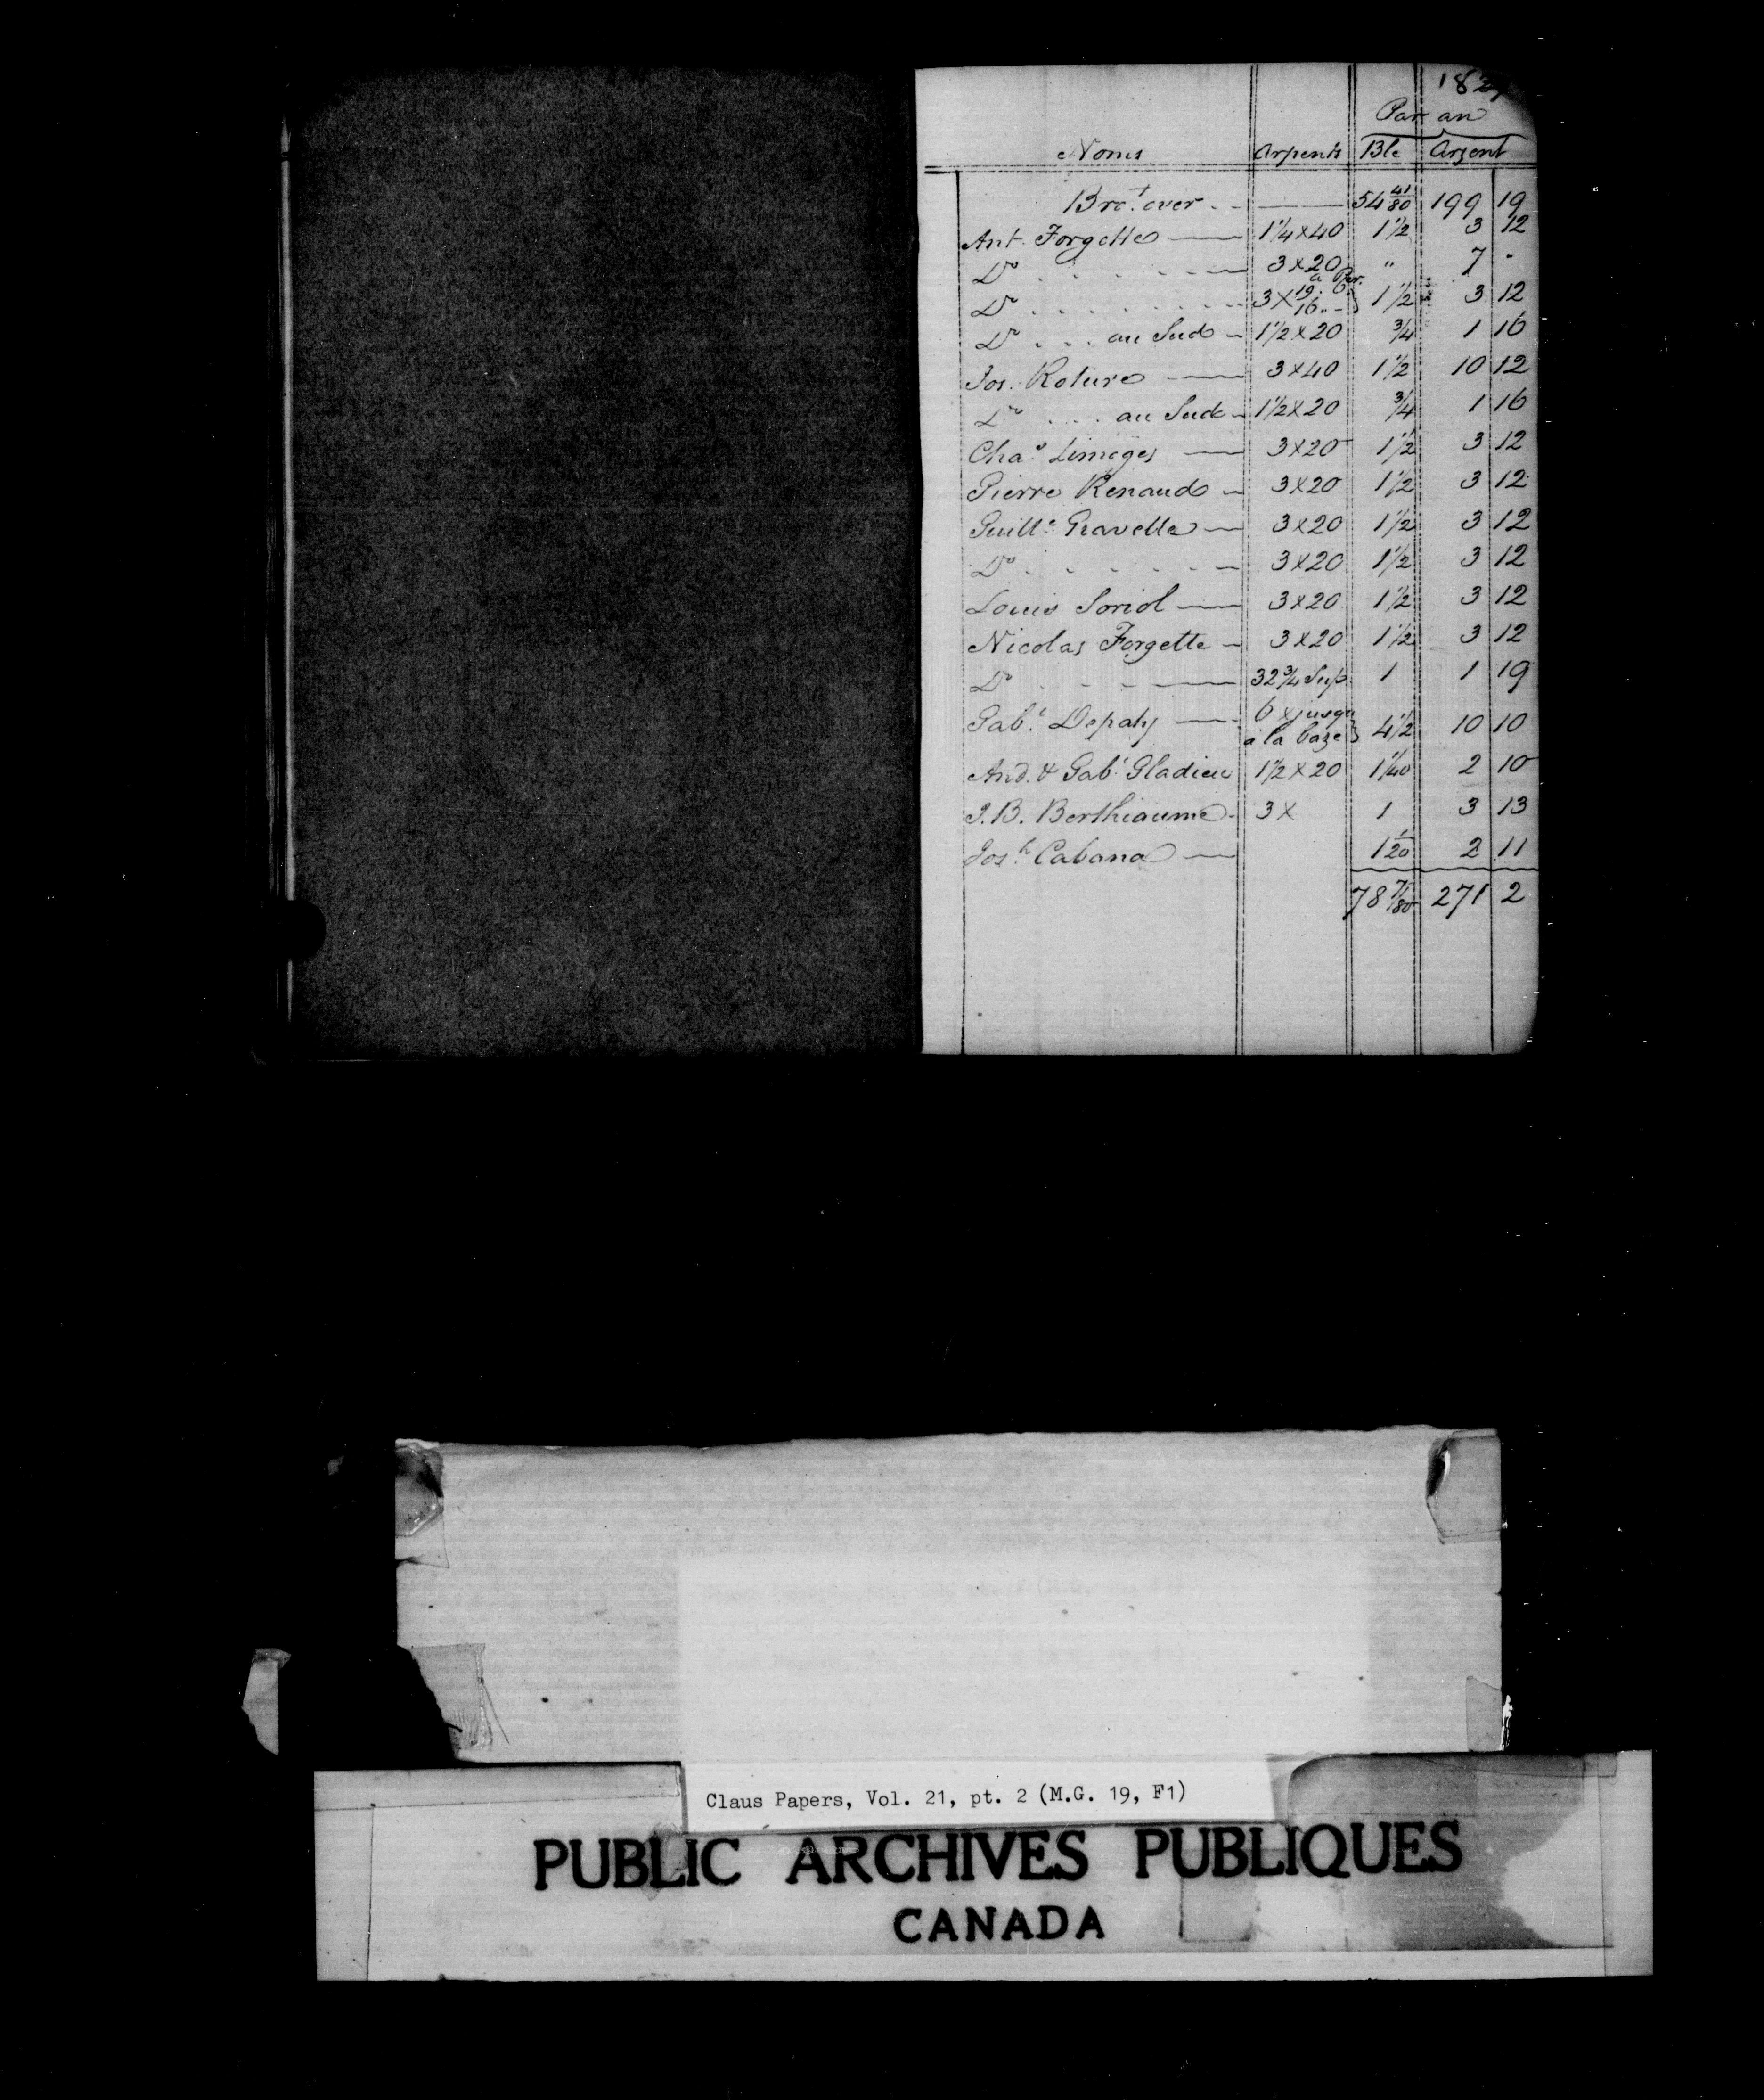 Par an
Noms Arpents Blé Argent
Bro.t over 54 41/80 199 19
Ant. Forgette 1 1/4 x 40 1 1/2 3 12
Do 3 x 20 " 7 -
Do 3 x 19. 6. 16.. - 1 1/2 3 12
Do au Sud 1 1/2 x 20 3/4 1 16
Jos. Roture 3 x 40 1 1/2 10 12
Do au Sud 1 1/2 x 20 3/4 1 16
Chas Limoges 3 x 20 1 1/2 3 12
Pierre Renaud 3 x 20 1 1/2 3 12
Guille Gravelle 3 x 20 1 1/2 3 12
Do 3 x 20 1 1/2 3 12
Louis Soriol 3 x 20 1 1/2 3 12
Nicolas Forgette 3 x 20 1 1/2 3 12
Do 32 3/4 Sup. 1 1 19
Gab.l Depaty 6 x jusqu
a la baze 4 1/2 10 10
And. & Gab.l Gladieu 1 1/2 x 20 1 1/40 2 10
J. B. Berthiaume 3 x 1 3 13
Jos.h Cabana 1 1/20 2 11
78 7/80 271 2
Claus Papers, Vol. 21, pt. 2 (M.G. 19, F1)
PUBLIC ARCHIVES PUBLIQUES
CANADA